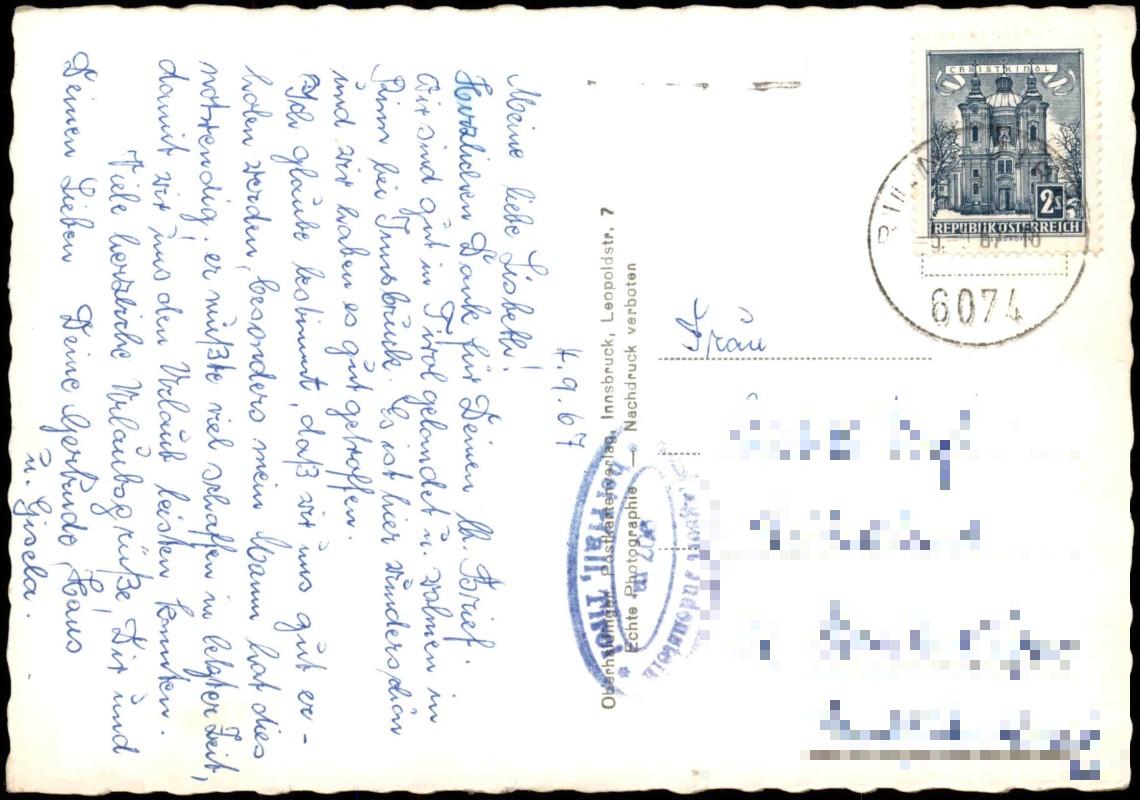 4.9.67
Meine liebe Lisbeth!
Herzlichen Dank für Deinen lb. Brief.
Wir sind gut in Tirol gelandet u. wohnen in
Rinn bei Innsbruck. Es ist hier wunderschön
und wir haben es gut getroffen.
Ich glaube bestimmt, daß wir uns gut er-
holen werden, besonders mein Mann hat dies
notwendig. er mußte viel schaffen in letzter Zeit,
damit wir uns den Urlaub leisten konnten.
Viele herzliche Urlaubsgrüße, Dir und
Deinen Lieben Deine Gertrude, Hans
u. Gisela.
Postkartenverlag, Innsbruck, Leopoldstr. 7
Echte Photographie — Nachdruck verboten
bei Hall, Tirol
CHRISTKINDL
2s
REPUBLIK ÖSTERREICH
6074
Frau